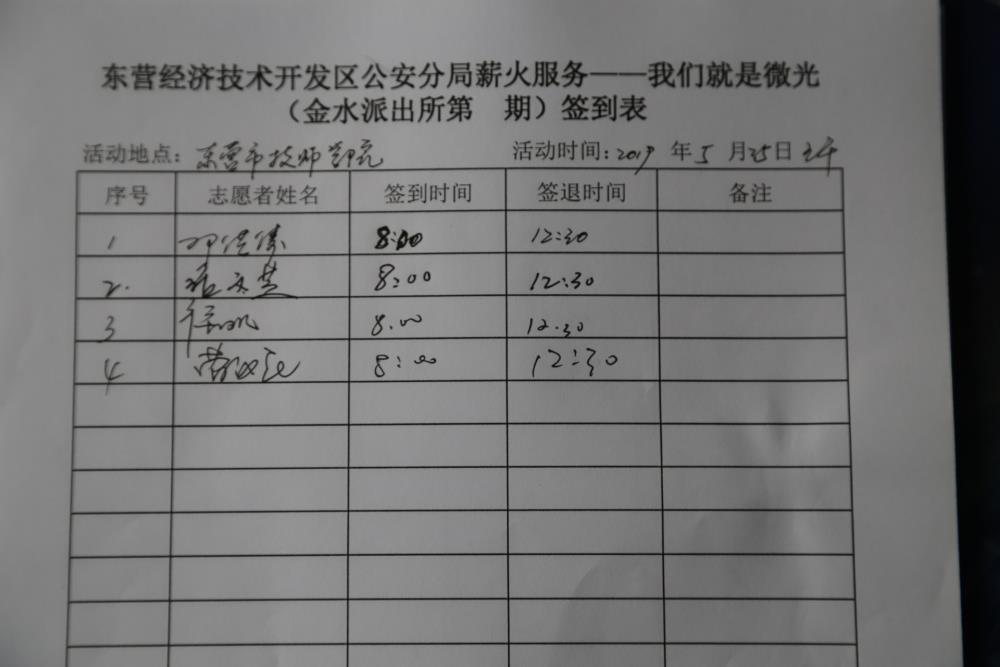 东营经济技术开发区公安分局薪火服务——我们就是微光
（金水派出所第 期）签到表
活动地点：东营市技师学院 活动时间：2019 年 5 月 25日 上午
序号 志愿者姓名 签到时间 签退时间 备注
1 8:00 12:30
2. 8:00 12:30
3 8.00 12.30
4 8:00 12:30